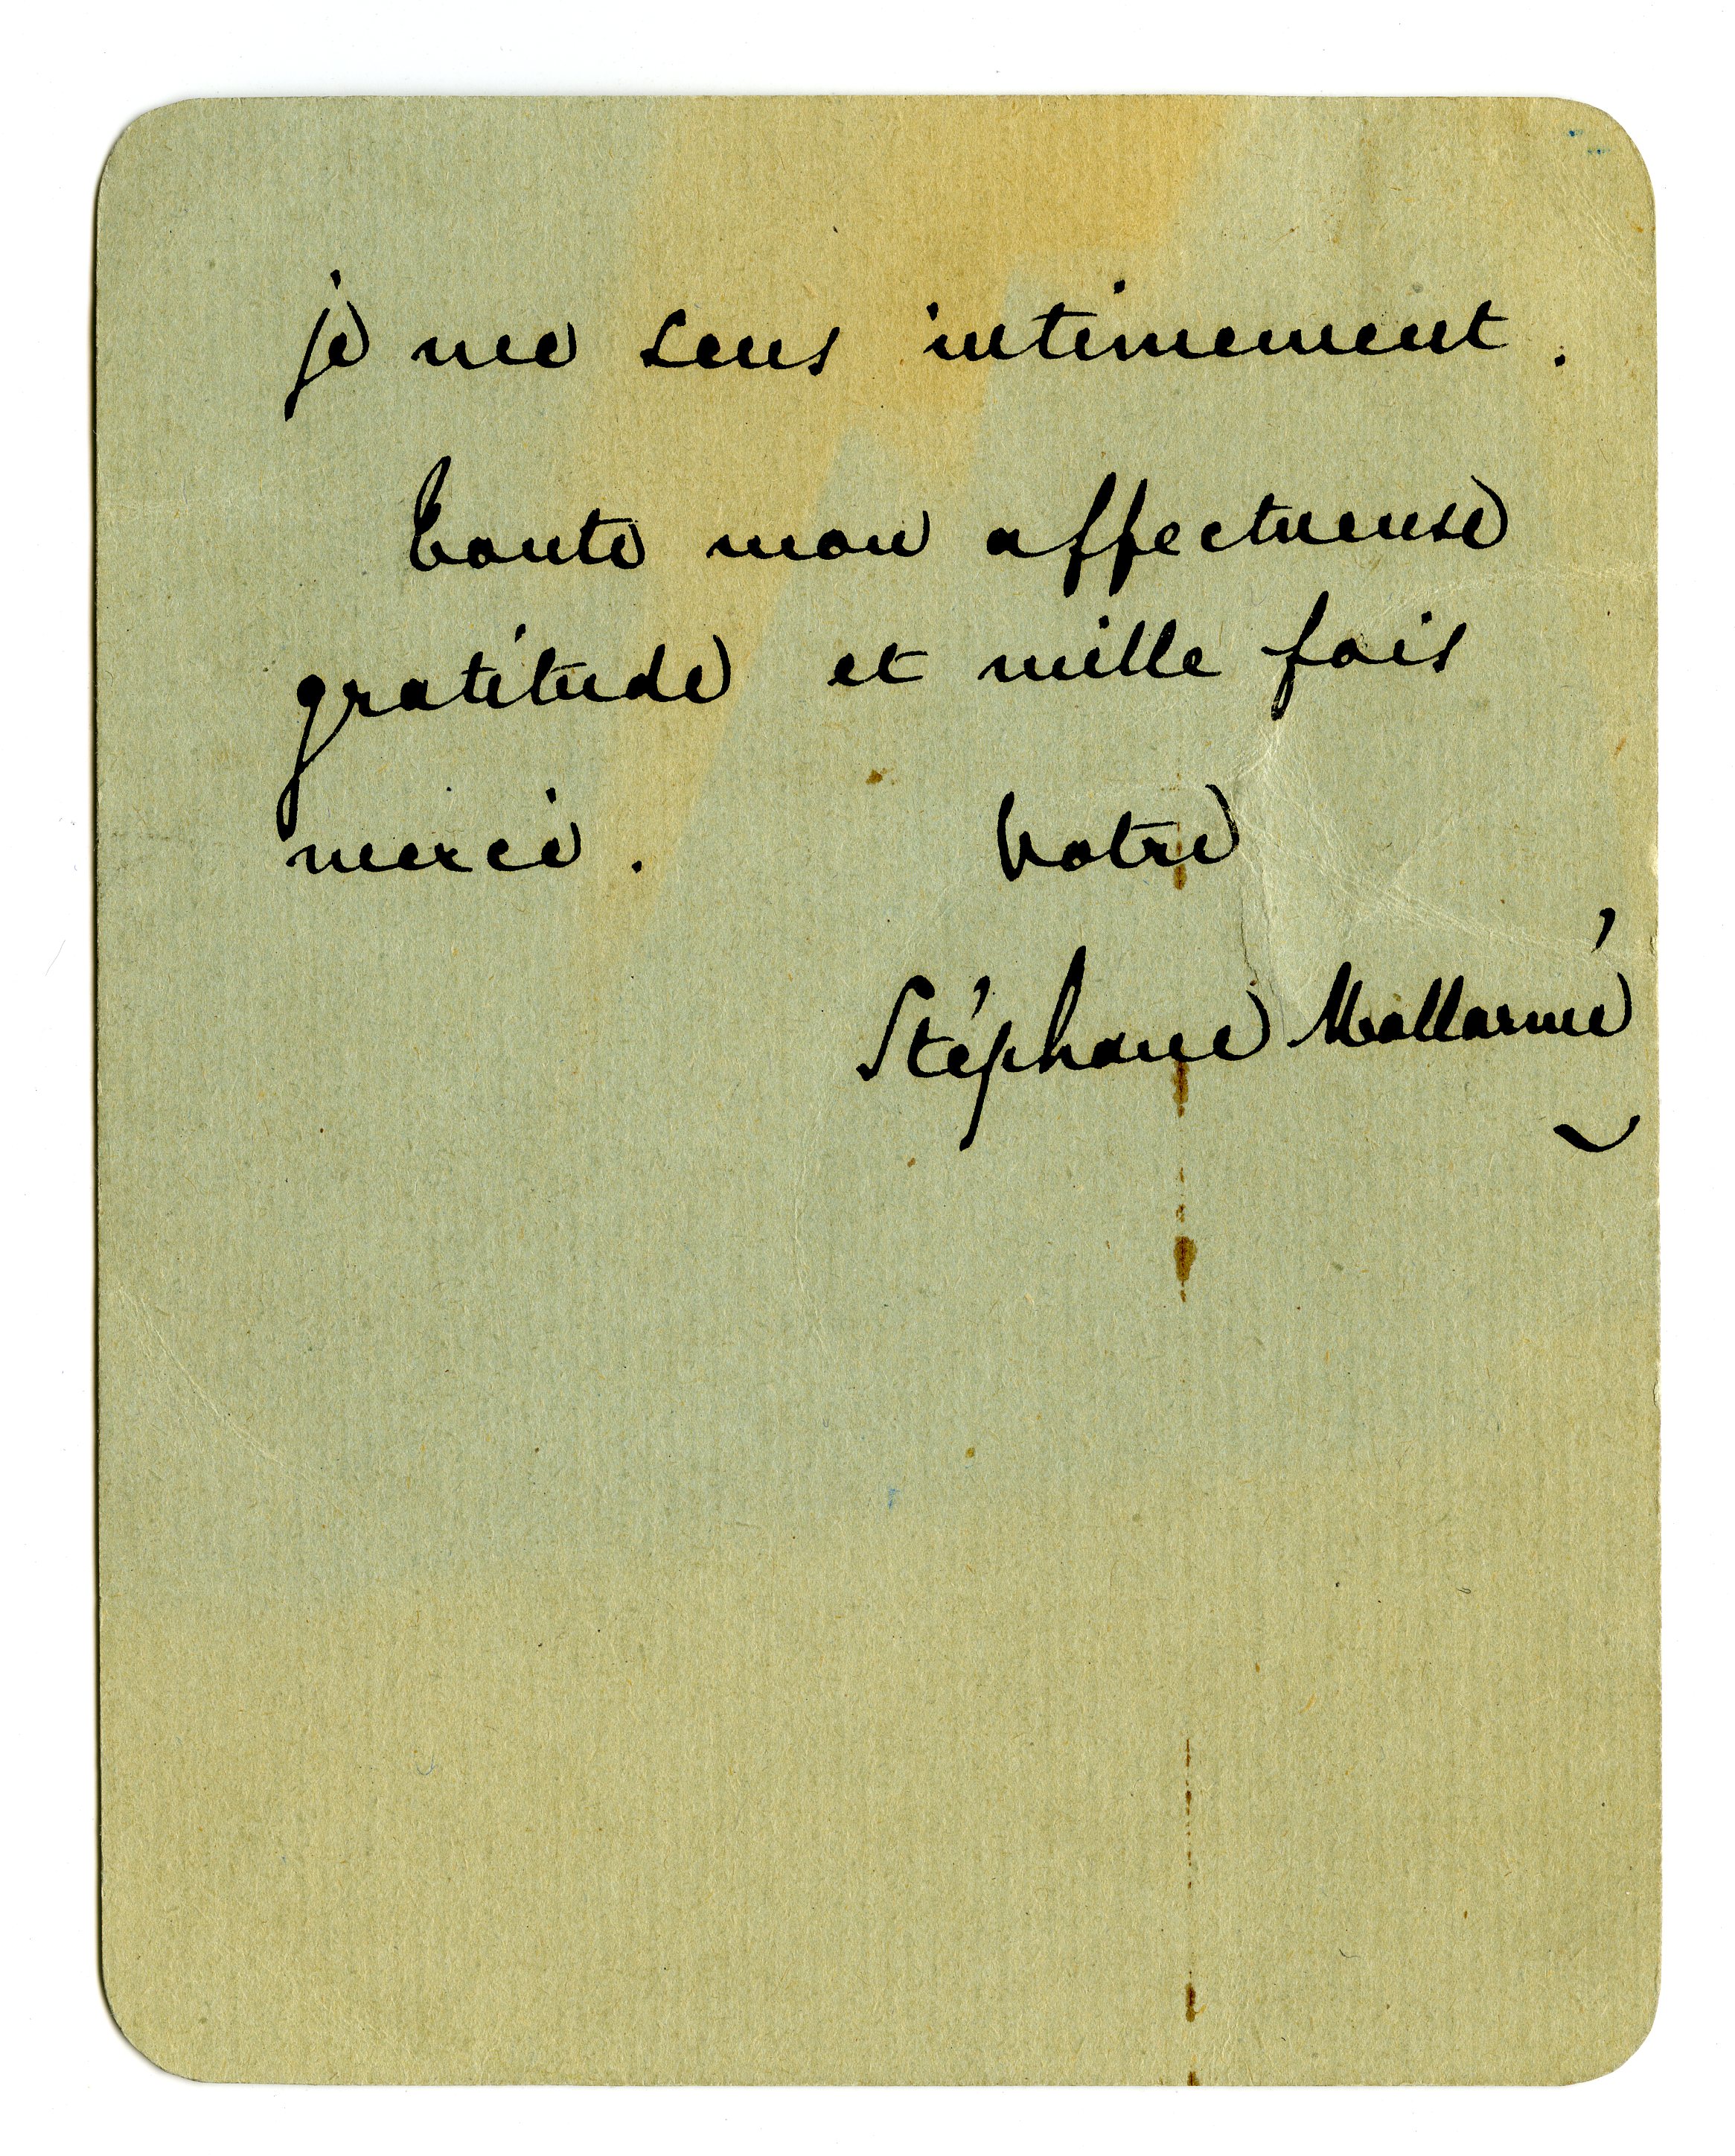 je me sens intimement.
Toute mon affectueuse
gratitude et mille fois
merci. Votre
Stéphane Mallarmé